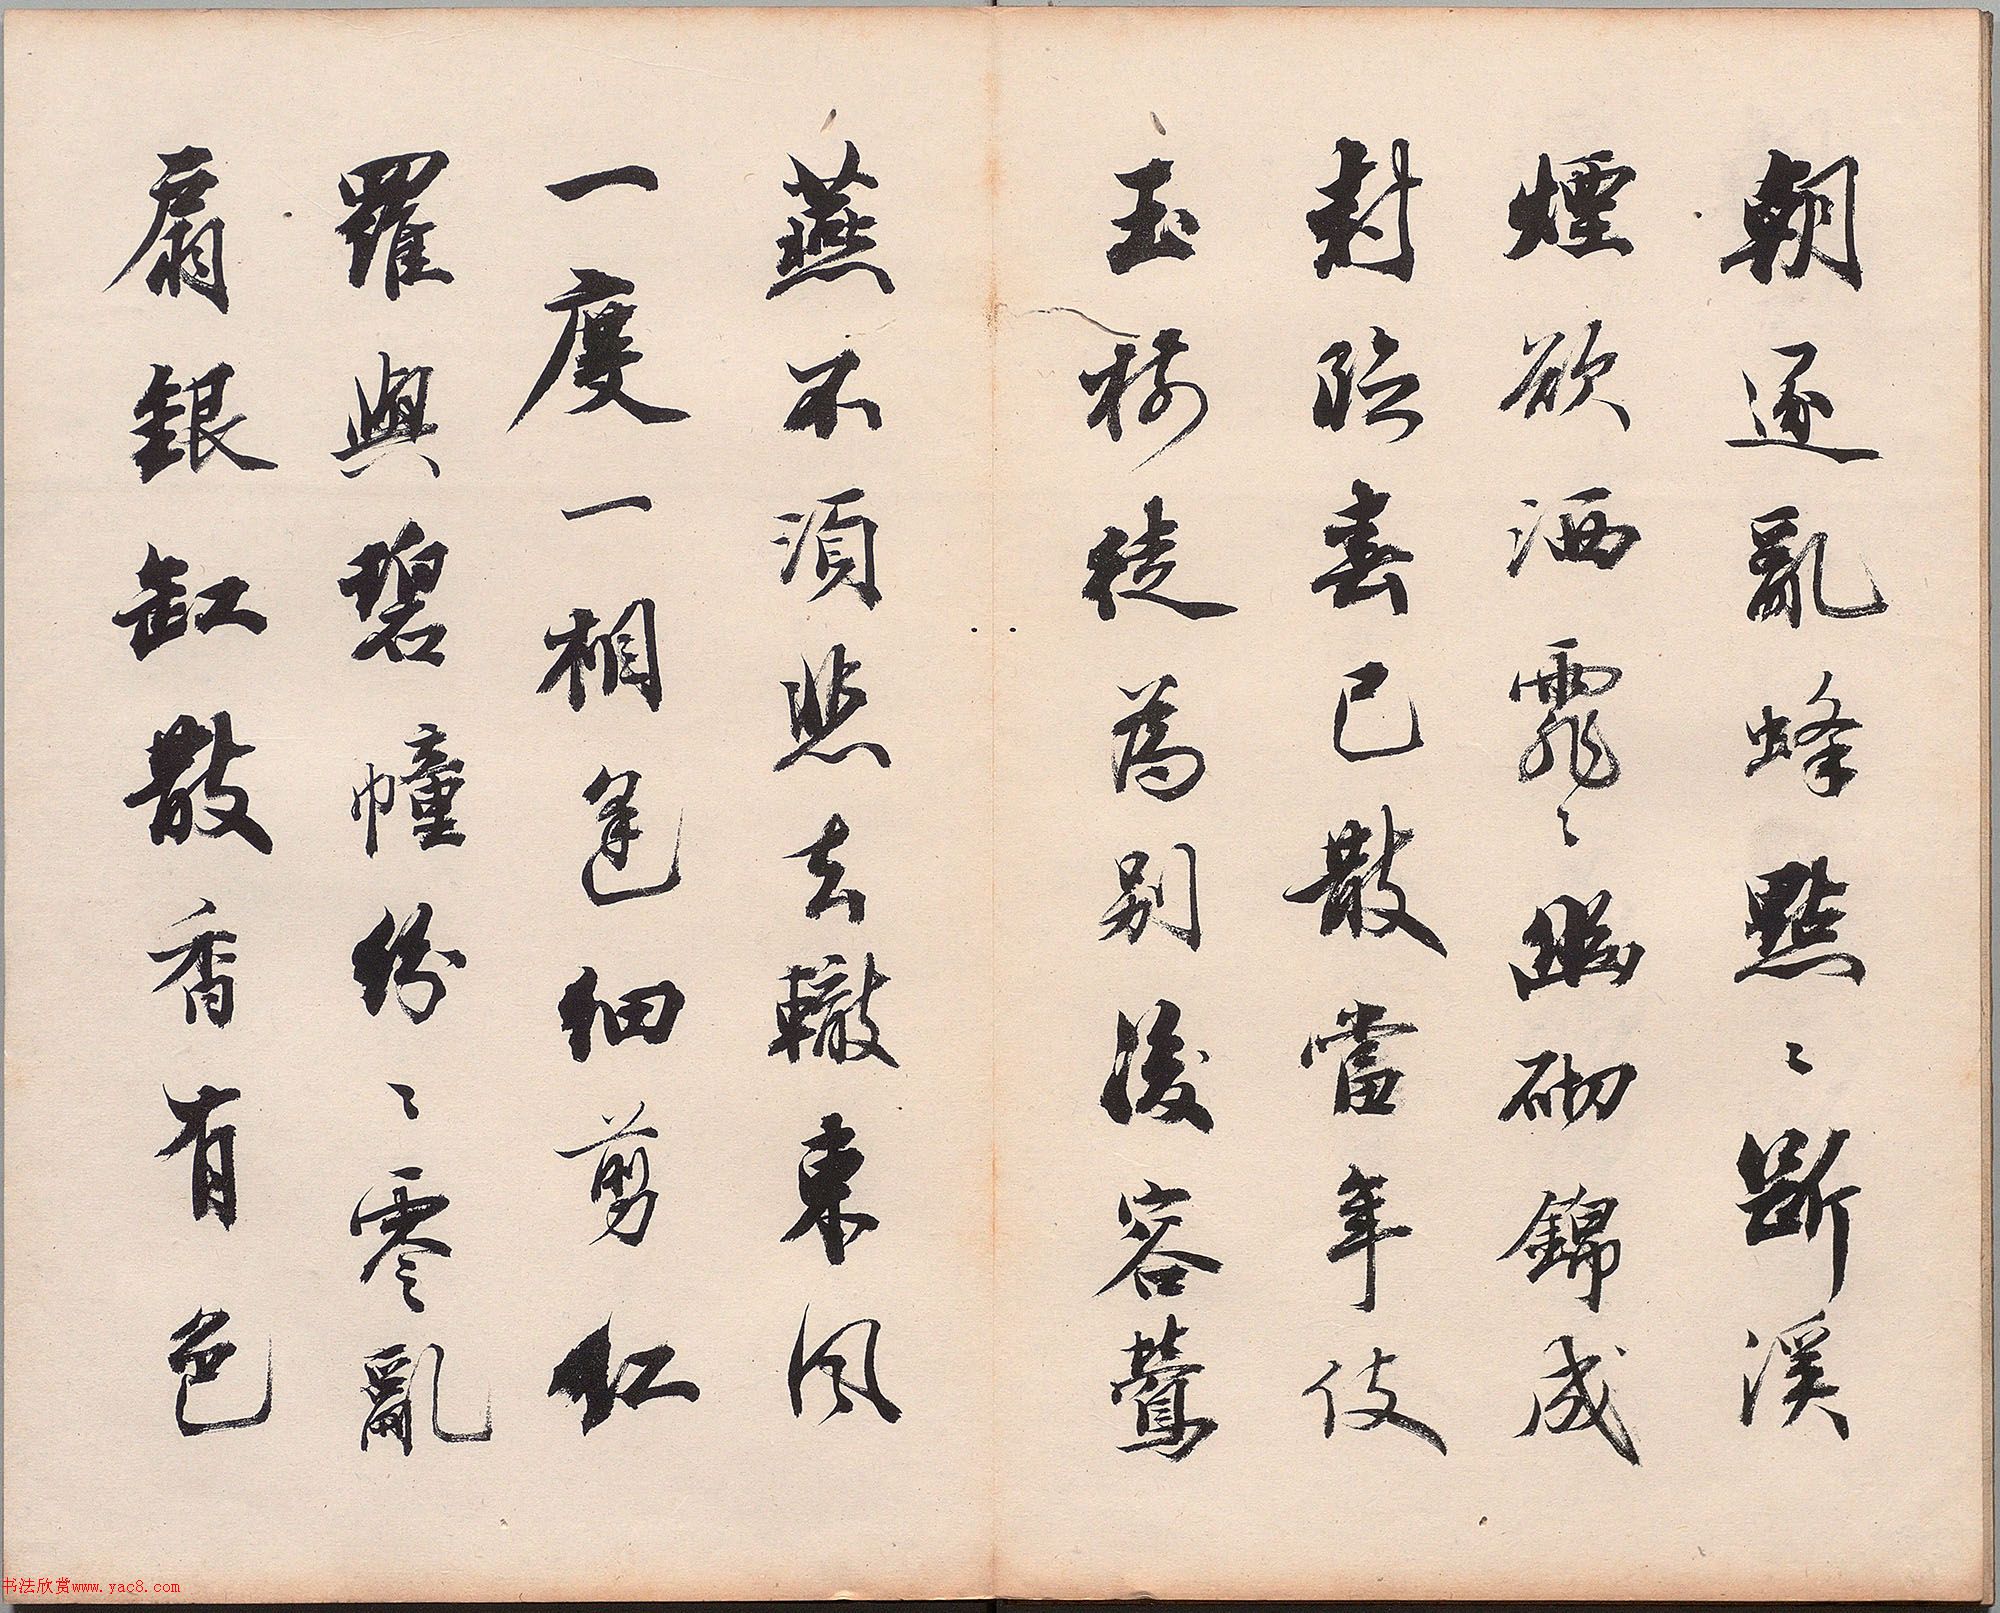 朝逐亂蜂點〻斷溪
煙欲洒霏〻幽砌錦成
封臨春已散當年伎
玉樹徒為別後容鶯
燕不須悲去轍東風
一度一相逢細剪紅
羅與碧幢紛〻零亂
扇銀缸散香有色
书法欣赏www.yac8.com